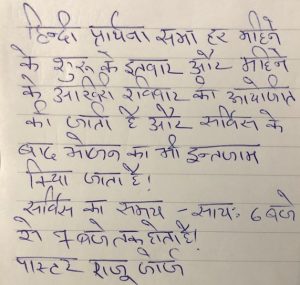 हिन्दी प्रार्थना सभा हर महिने
के शुरू के इतवार और महिने
के आखिरी रविवार को आयोजित
की जाती है और सर्विस के
बाद भोजन का भी इन्तजाम
किया जाता है!
सर्विस का समय - सायः 6 बजे
से 7 बजे तक होता है!
पास्टर राजू जॉर्ज